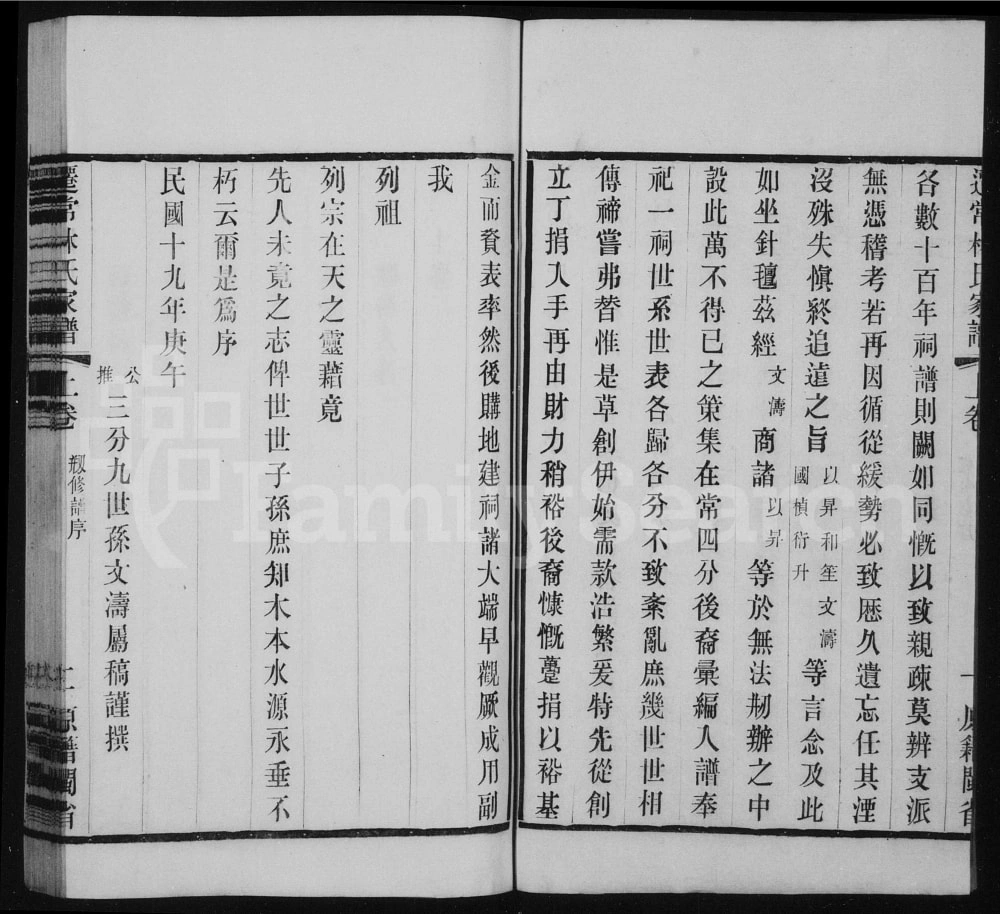 各數十百年祠譜則闕如同慨以致親疎莫辨支派
無憑稽考若再因循從緩勢必致歷久遺忘任其湮
沒殊失愼終追遠之旨以昇和笙文濤國楨衍升等言念及此
如坐針氊茲經文濤商諸以昇等於無法刱辦之中
設此萬不得已之策集在常四分後裔彙編入譜奉
祀一祠世系世表各歸各分不致紊亂庶幾世世相
傳禘嘗弗替惟是草創伊始需款浩繁爰特先從創
立丁捐入手再由財力稍裕後裔慷慨躉捐以裕基
金而資表率然後購地建祠諸大端早觀厥成用副
我
列祖
列宗在天之靈藉竟
先人未竟之志俾世世子孫庶知木本水源永垂不
朽云爾是爲序
民國十九年庚午
公推三分九世孫文濤屬稿謹撰
遷常林氏家譜 上卷 刱修譜序 二 原籍閩省
FamilySearch